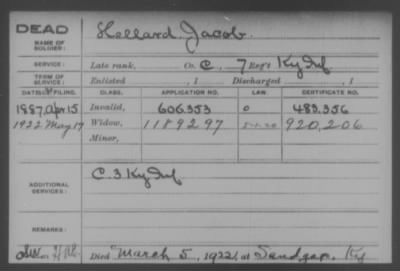 DEAD
NAME OF SOLDIER: Hellard Jacob
SERVICE: Late rank, Co. C, 7 Reg't Ky Inf
TERM OF SERVICE: Enlisted , 1 Discharged , 1
DATE OF FILING. CLASS. APPLICATION NO. LAW. CERTIFICATE NO.
1887 Apr 15 Invalid, 606.353 0 483.356
1922 May 19 Widow, 1189297 920,206
Minor,
ADDITIONAL SERVICES: C. 3 Ky Inf
REMARKS:
Died March 5, 1922, at Sandgap, Ky